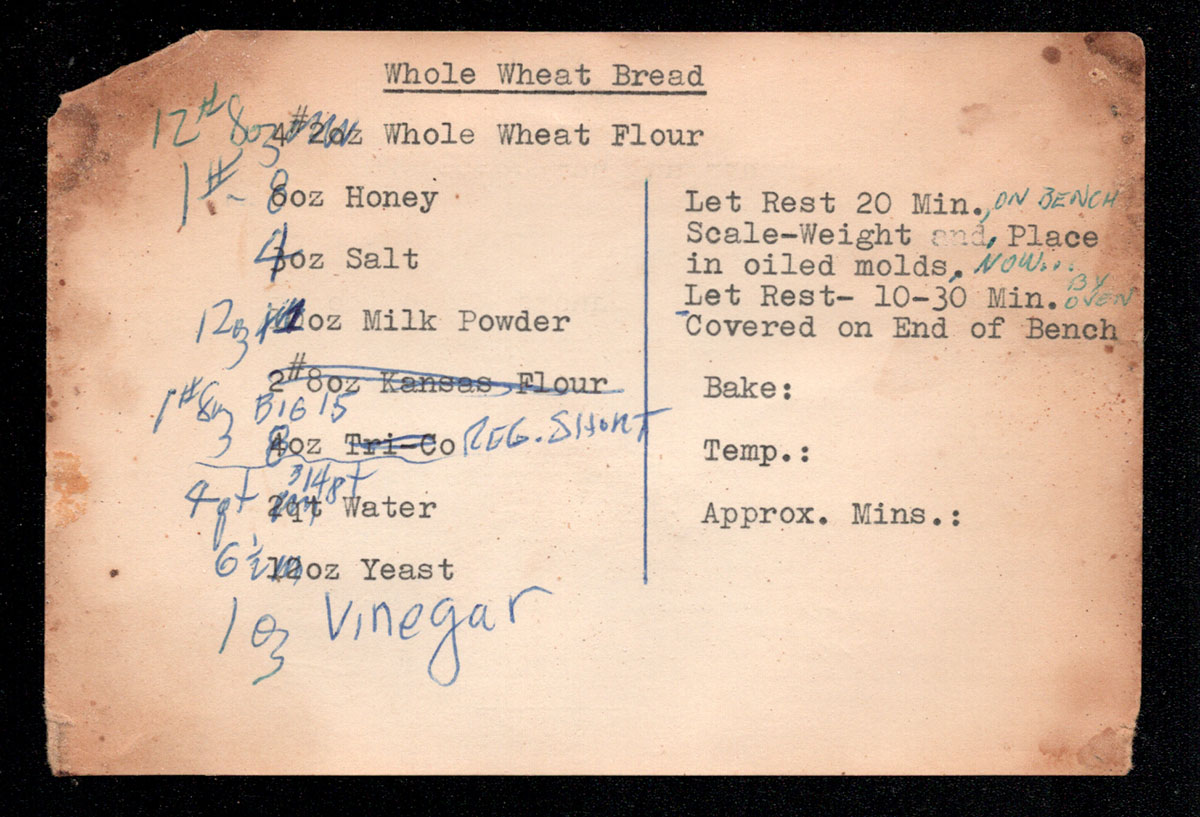 Whole Wheat Bread
12# 8oz 4#2oz Whole Wheat Flour
1#- 8oz Honey
4oz Salt
12oz Milk Powder
2#8oz Kansas Flour
1#8oz BIG 15
8oz Tri-Co REG. SHORT
4qt 2qt Water
6½ 12oz Yeast
1oz Vinegar
Let Rest 20 Min., ON BENCH
Scale-Weight and, Place
in oiled molds, NOW...
Let Rest- 10-30 Min. BY OVEN
Covered on End of Bench
Bake:
Temp.:
Approx. Mins.: